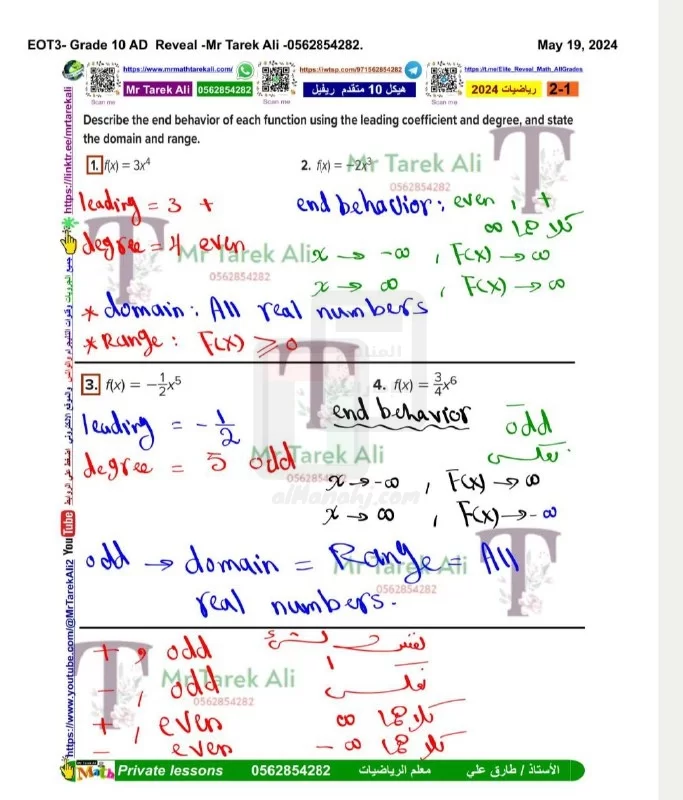 EOT3- Grade 10 AD Reveal -Mr Tarek Ali -0562854282. May 19, 2024
https://www.mrmathtarekali.com/ https://wtsp.com/971562854282 https://t.me/Elite_Reveal_Math_AllGrades
Mr Tarek Ali 0562854282 هيكل 10 متقدم ريفيل رياضيات 2024 2-1
Scan me Scan me Scan me
Describe the end behavior of each function using the leading coefficient and degree, and state
the domain and range.
1. f(x) = 3x⁴ 2. f(x) = -2x³
Mr Tarek Ali
0562854282
leading = 3 + end behavior: even , +
كلاهما ∞
degree = 4 even x → -∞ , F(x) → ∞
Mr Tarek Ali
0562854282
x → ∞ , F(x) → ∞
* domain: All real numbers
* Range: F(x) ≥ 0
3. f(x) = -1/2x⁵ 4. f(x) = 3/4x⁶
leading = - 1/2 end behavior odd
degree = 5 odd عكس
Mr Tarek Ali
0562854282
x → -∞ , F(x) → ∞
almanahj.com
x → ∞ , F(x) → -∞
odd → domain = Range = All
Mr Tarek Ali
0562854282
real numbers.
+ , odd نفس الشئ
- , odd عكس
Mr Tarek Ali
0562854282
+ , even كلاهما ∞
- even كلاهما -∞
Math Private lessons 0562854282 معلم الرياضيات الأستاذ / طارق علي
https://www.youtube.com/@MrTarekAli2 YouTube
https://linktr.ee/mrtarekali